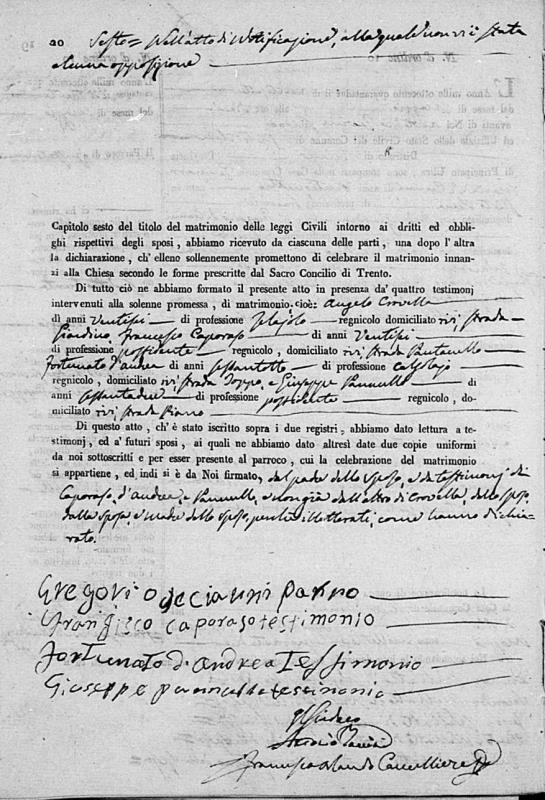 20 Sesto = Nell'atto di Notificazione, alla quale non vi è stata
alcuna opposizione
Capitolo sesto del titolo del matrimonio delle leggi Civili intorno ai dritti ed obbli-
ghi rispettivi degli sposi, abbiamo ricevuto da ciascuna delle parti, una dopo l'altra
la dichiarazione, ch'elleno sollennemente promettono di celebrare il matrimonio innan-
zi alla Chiesa secondo le forme prescritte dal Sacro Concilio di Trento.
Di tutto ciò ne abbiamo formato il presente atto in presenza da' quattro testimonj
intervenuti alla solenne promessa, di matrimonio. cioè: Angelo Corvella
di anni Ventisei di professione regnicolo domiciliato ivi, strada
Giardino, Francesco Caporaso di anni Ventisei
di professione possidente regnicolo, domiciliato ivi, strada Pantanello
Fortunato d'Andrea di anni Sessantotto di professione calzolajo
regnicolo, domiciliato ivi strada Pozzo, e Giuseppe Pannullo di
anni Sessantadue di professione possidente regnicolo, do-
miciliato ivi, strada Piano
Di questo atto, ch'è stato iscritto sopra i due registri, abbiamo dato lettura a te-
stimonj, ed a' futuri sposi, ai quali ne abbiamo dato altresì date due copie uniformi
da noi sottoscritti e per esser presente al parroco, cui la celebrazione del matrimonio
si appartiene, ed indi si è da Noi firmato, dal padre dello sposo, e da testimonj di
Caporaso, d'Andrea, e Pannullo, e non già dell'altro di Corvella, dello sposo,
dalla sposa, e madre dello sposo, perchè illetterati, come hanno dichia-
rato.
Gregorio
Frangisco caporaso testimonio
Fortunato d. andrea Tessimonio
Gioseppe pannullo testimonio
Il Sindaco
Francesco Cancelliere